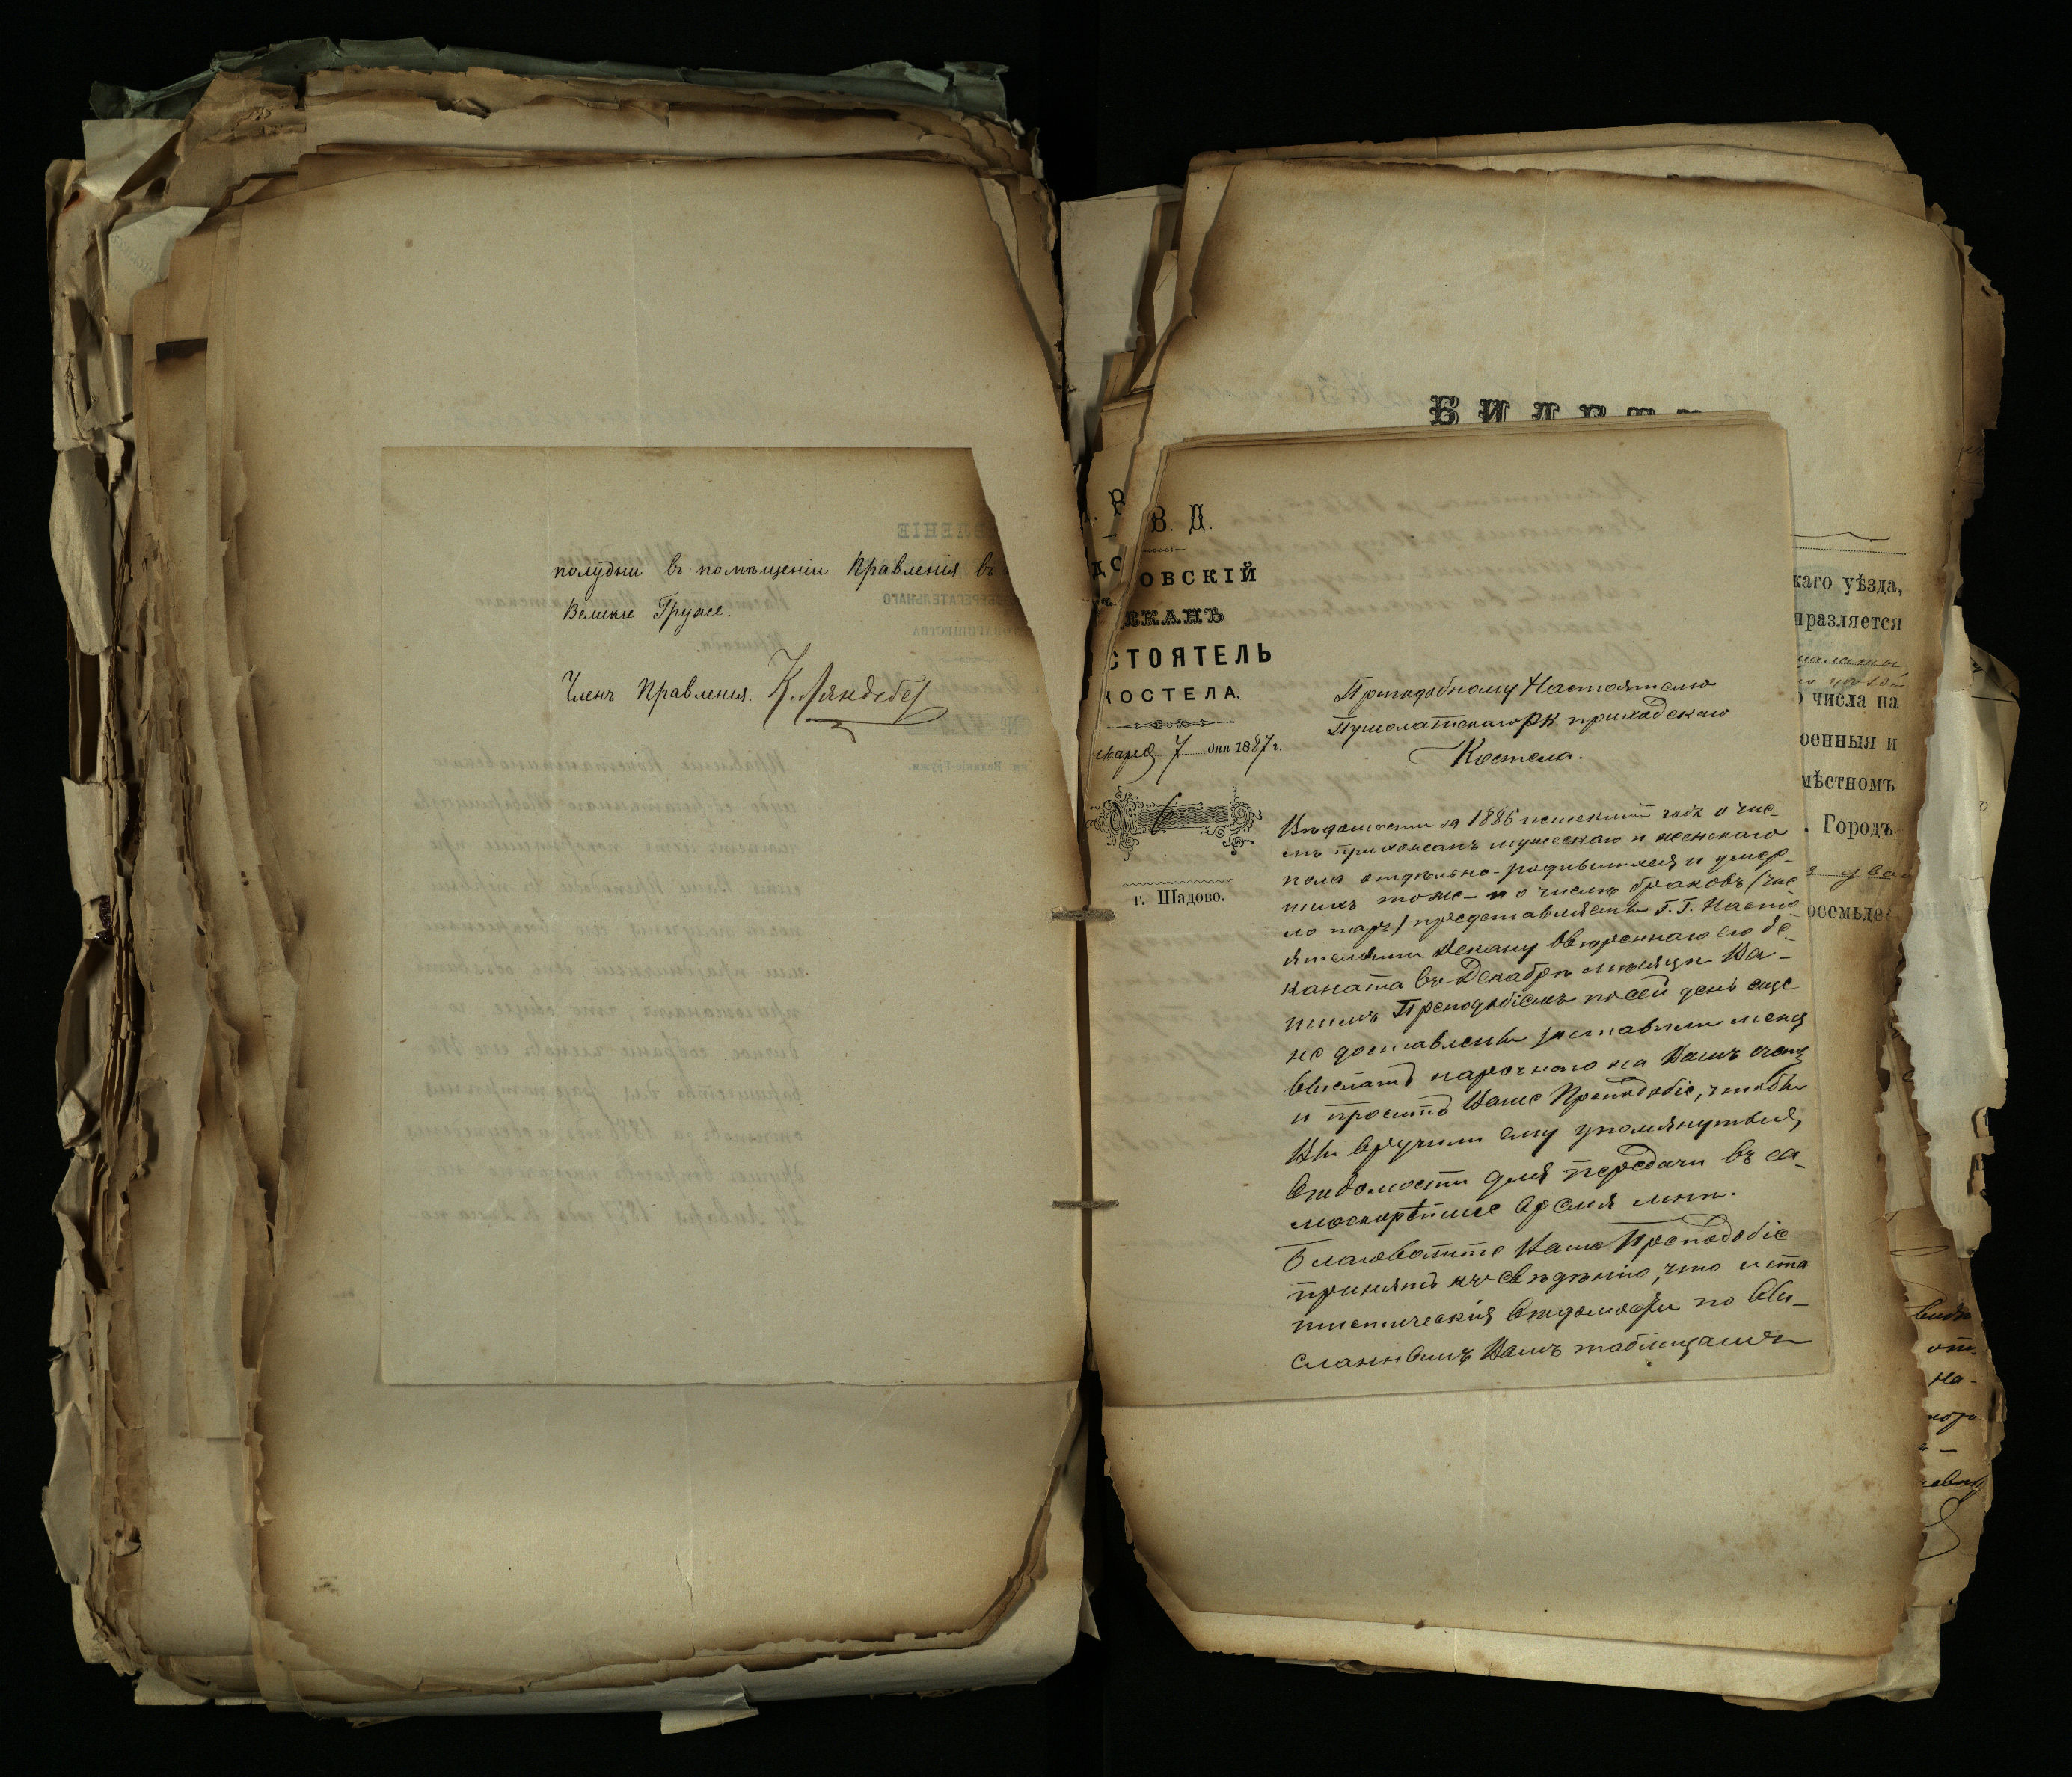 полудни въ помѣщеніи Правленія въ
Великіе Грузже.
Членъ Правленія. К. Ляндсбер
БИЛЕТЪ
В. Д.
ОВСКІЙ
ЕКАНЪ
СТОЯТЕЛЬ
КОСТЕЛА.
Января 7 дня 1887 г.
№ 6
г. Шадово.
Преподобному Настоятелю
Пумпянскаго Р.К. приходскаго
Костела.
Вѣдомости за 1886 истекшій годъ о чис-
лѣ прихожанъ мужескаго и женскаго
пола отдѣльно-родившихся и умер-
шихъ тоже-и о числѣ браковъ (чис
ло паръ) представляемы Г.Г. Насто
ятелями Декану ввѣреннаго его де-
каната въ Декабрѣ мѣсяцѣ Ва-
шимъ Преподобіемъ по сей день еще
не доставлены заставили меня
выслать нарочнаго на Вашъ счетъ
и просить Ваше Преподобіе, чтобы
Вы вручили ему упомянутыя
вѣдомости для передачи въ са-
москорѣйшее время мнѣ.
Благоволите Ваше Преподобіе
принять къ свѣдѣнію, что и ста
тистическія вѣдомости по вы-
сланнымъ Вамъ таблицамъ
каго уѣзда,
правляется
числа на
оенныя и
мѣстномъ
Городъ
два
осемьде